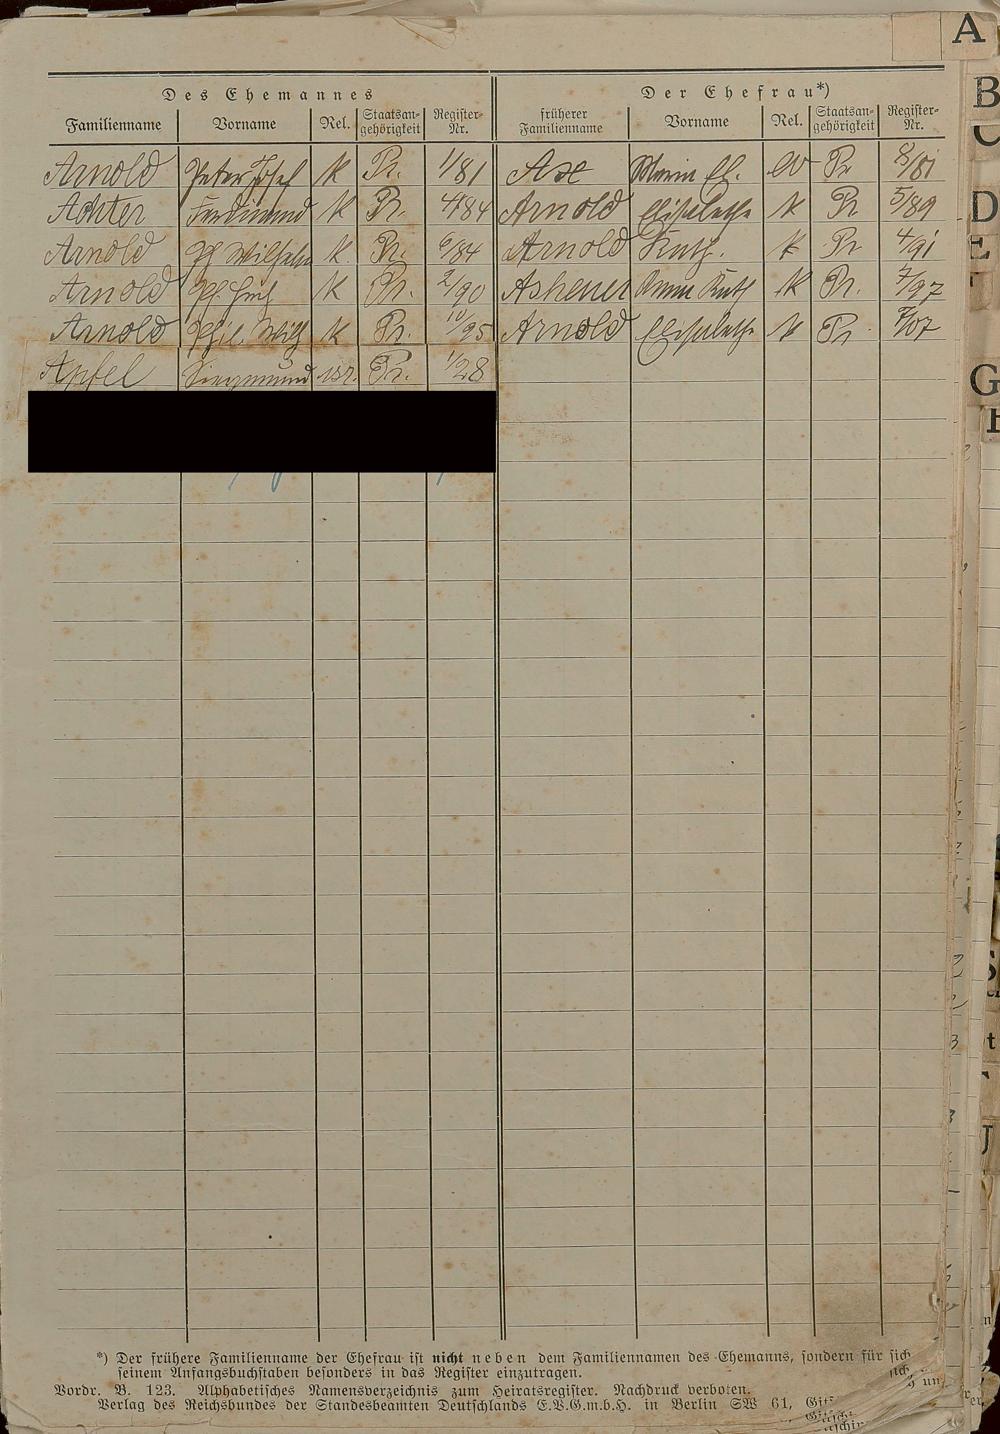 A
Des Ehemannes Der Ehefrau*)
Familienname Vorname Rel. Staatsan- gehörigkeit Register- Nr. früherer Familienname Vorname Rel. Staatsan- gehörigkeit Register- Nr.
Arnold Peter Josef K Pr. 1/81 Axe Maria El. ev Pr 8/81
Achter Ferdinand K Pr. 4/84 Arnold Elisabetha K Pr 5/89
Arnold Ph Wilhelm K. Pr. 6/84 Arnold Kath. K Pr 4/91
Arnold K Pr. 2/90 Anna Kath K Pr. 7/97
Arnold Phil. Wilh K Pr. 10/95 Arnold Elisabetha K Pr /07
Apfel Siegmund isr. Pr. 1/28
*) Der frühere Familienname der Ehefrau ist nicht neben dem Familiennamen des Ehemanns, sondern für sich
seinem Anfangsbuchstaben besonders in das Register einzutragen.
Vordr. B. 123. Alphabetisches Namensverzeichnis zum Heiratsregister. Nachdruck verboten.
Verlag des Reichsbundes der Standesbeamten Deutschlands E.V.G.m.b.H. in Berlin SW 61,
B
C
D
E
G